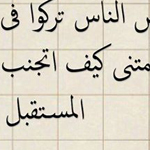 الناس تركوا في
متنى كيف اتجنب
المستقبل